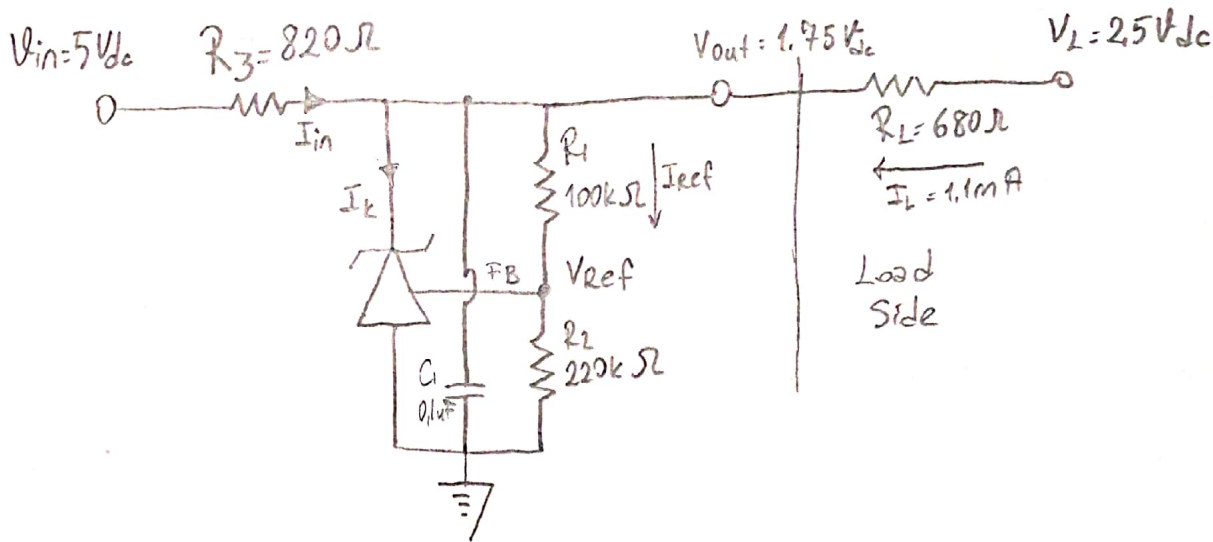 Vin=5Vdc
R3=820Ω
Iin
Vout=1.75Vdc
VL=2,5Vdc
RL=680Ω
IL=1,1mA
R1
100kΩ
Iref
Ik
FB
VRef
Load
Side
R2
220kΩ
C1
0,1uF